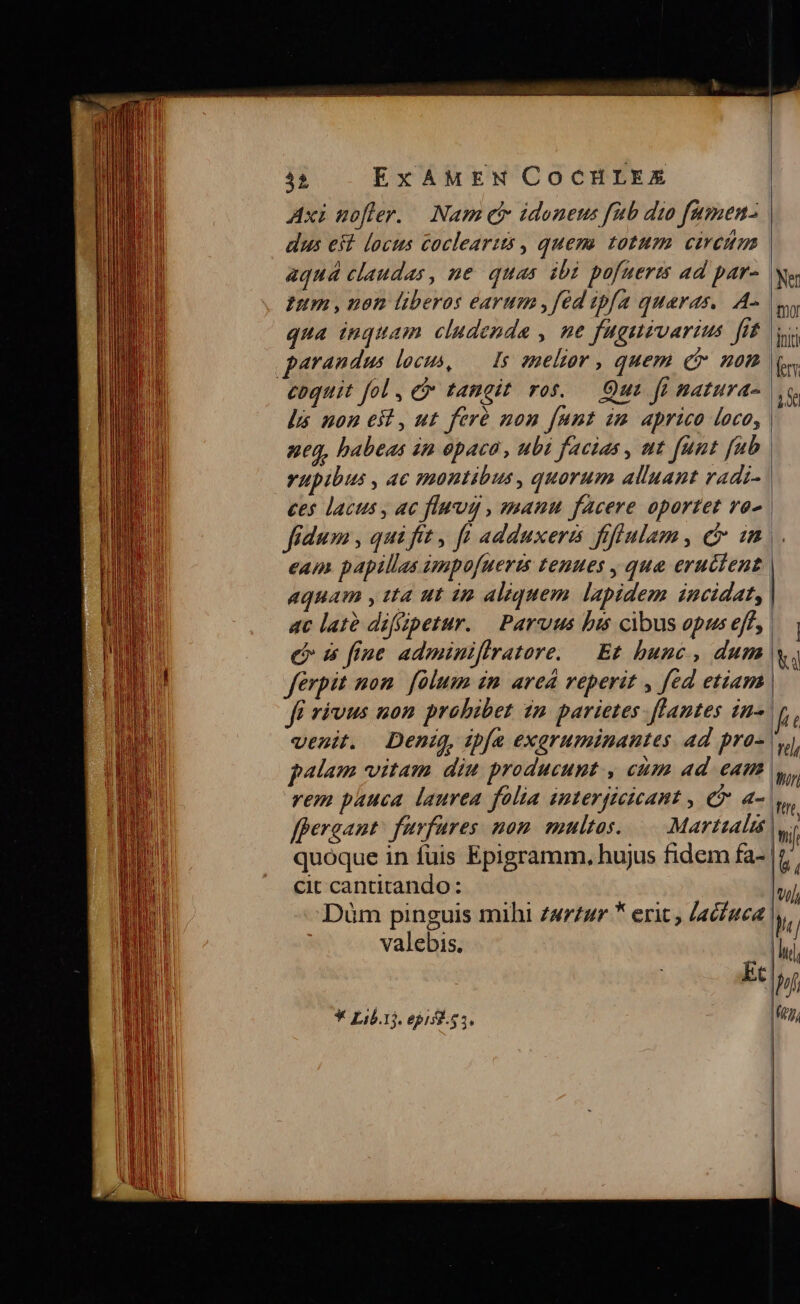 32 EXAMEN COCHLEÆ
Axi noster. Nam & idoneus sub dio sumen-
dus est locus coclearijs, quem totum circùm
aquâ claudas, ne quas ibi posueris ad par-
tum, non liberos earum, sed ipsa quæras. A-
qua inquam cludendæ, ne fugitivarius sit
parandus locus, Is melior, quem & non
coquit sol, & tangit ros. Qui si natura-
lis non est, ut ferè non sunt in aprico loco,
neq, habeas in opaco, ubi facias, ut sunt sub
rupibus, ac montibus, quorum alluant radi-
ces lacus, ac fluvij, manu facere oportet ro-
sidum, qui fit, si adduxeris fistulam, & in
eam papillas imposueris tenues, quæ eructent
aquam, ita ut in aliquem lapidem incidat,
ac latè dissipetur. Parvus his cibus opus est,
& is sine administratore. Et hunc, dum
serpit non solum in areâ reperit, sed etiam
si rivus non prohibet in parietes stantes in-
venit. Deniq, ipsæ exgruminantes ad pro-
palam vitam diu producunt, cùm ad eam
rem pauca laurea folia interjicicant, & a-
spergant furfures non multos. Martialis
quoque in suis Epigramm. hujus fidem fa-
cit cantitando:
Dùm pinguis mihi turtur * erit, lactuca
valebis.
Et
* Lib.13. epist.53.